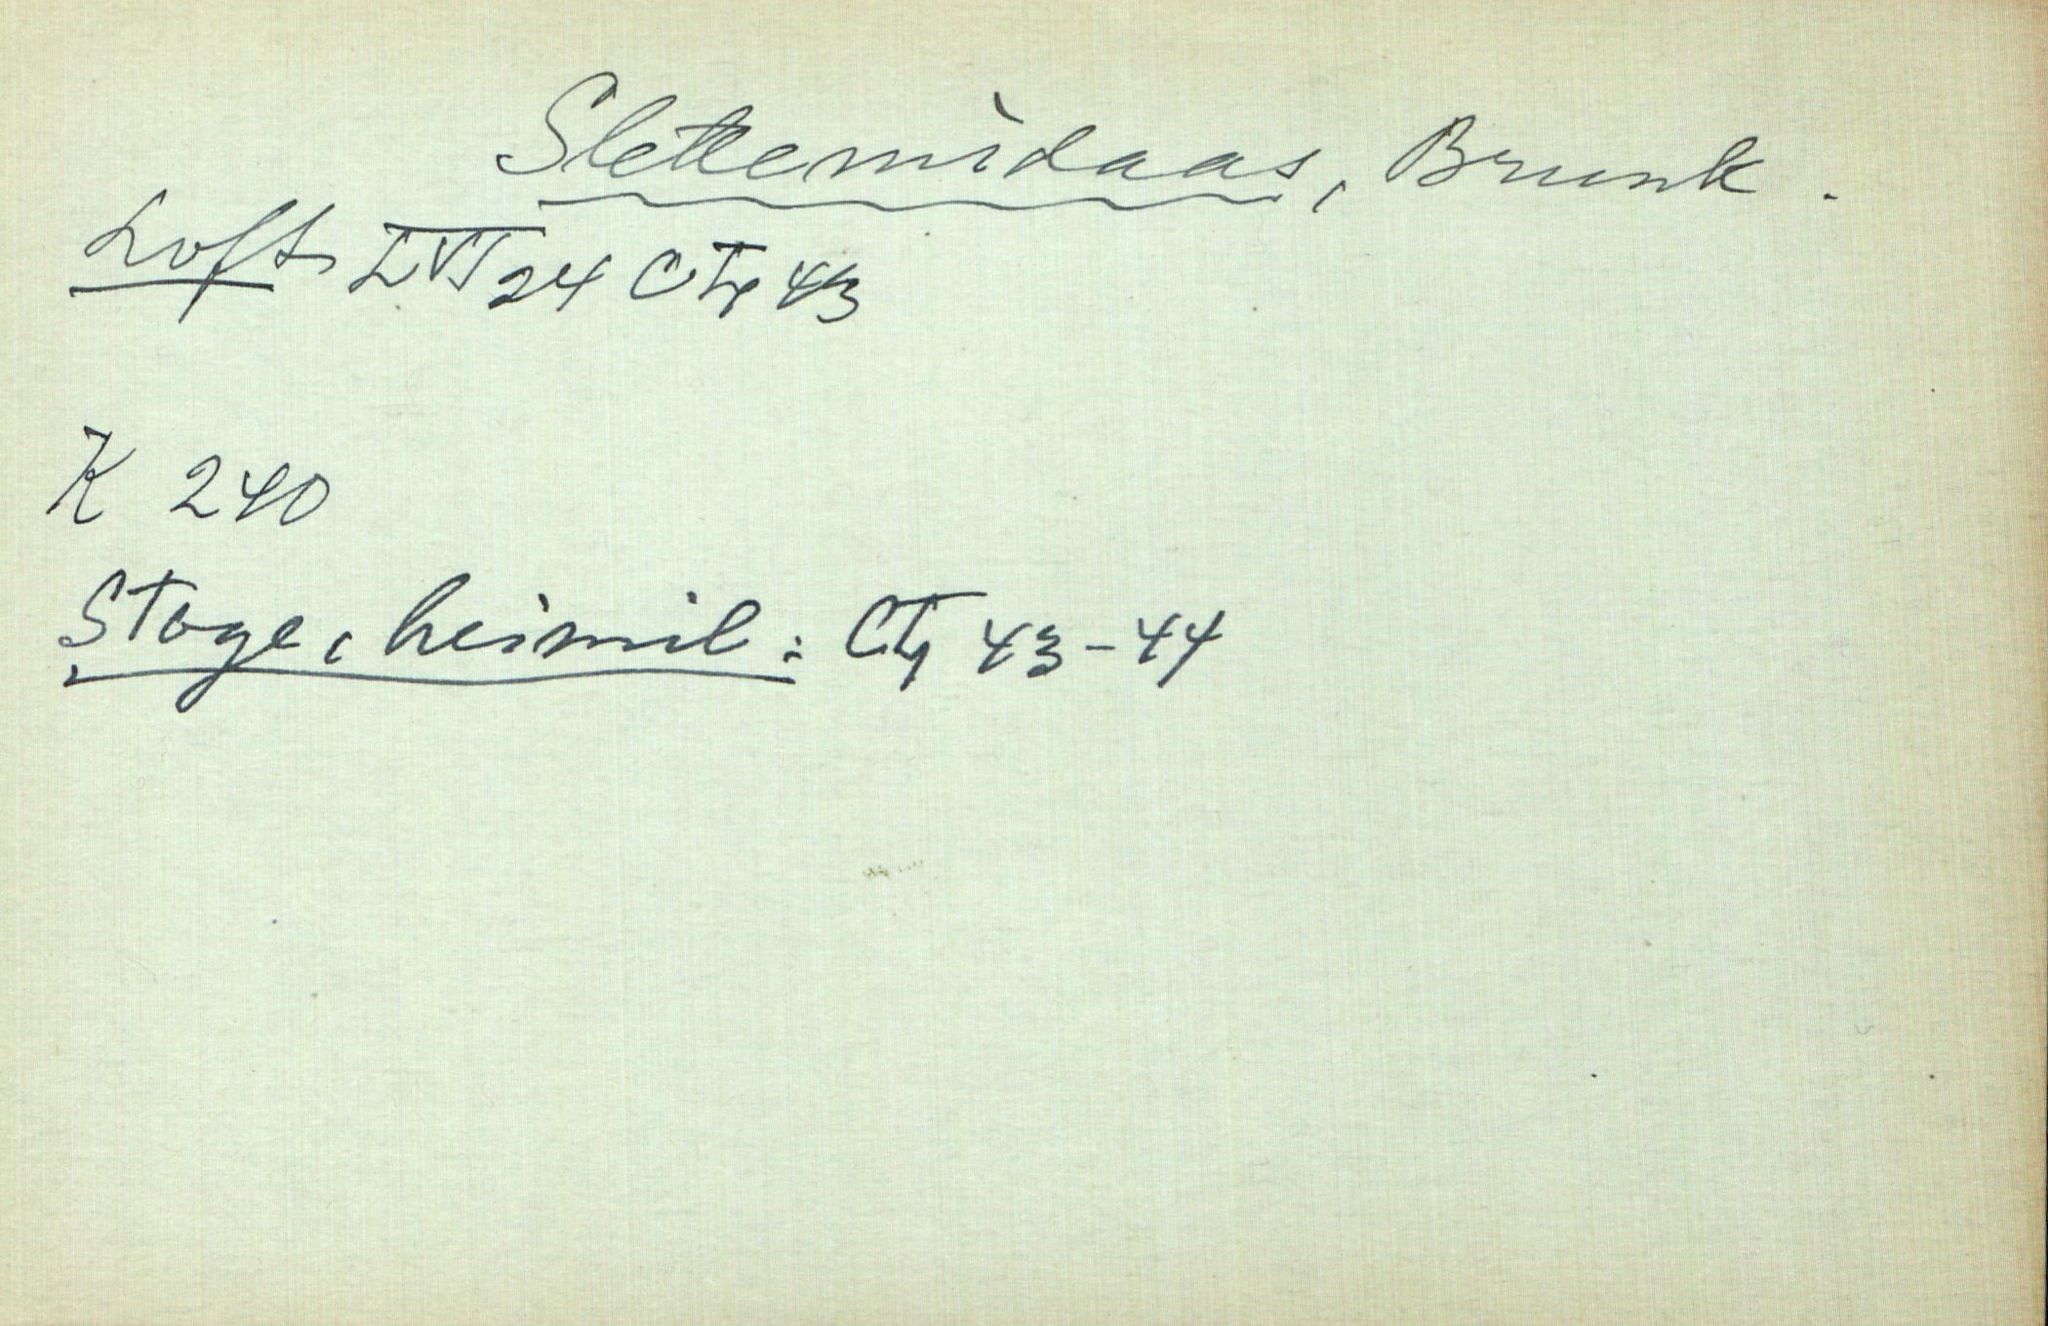 Slettemidaas, Brunk.
Loft LVI 24 CIy 43
K 240
Stoge, heimil: CIy 43-44